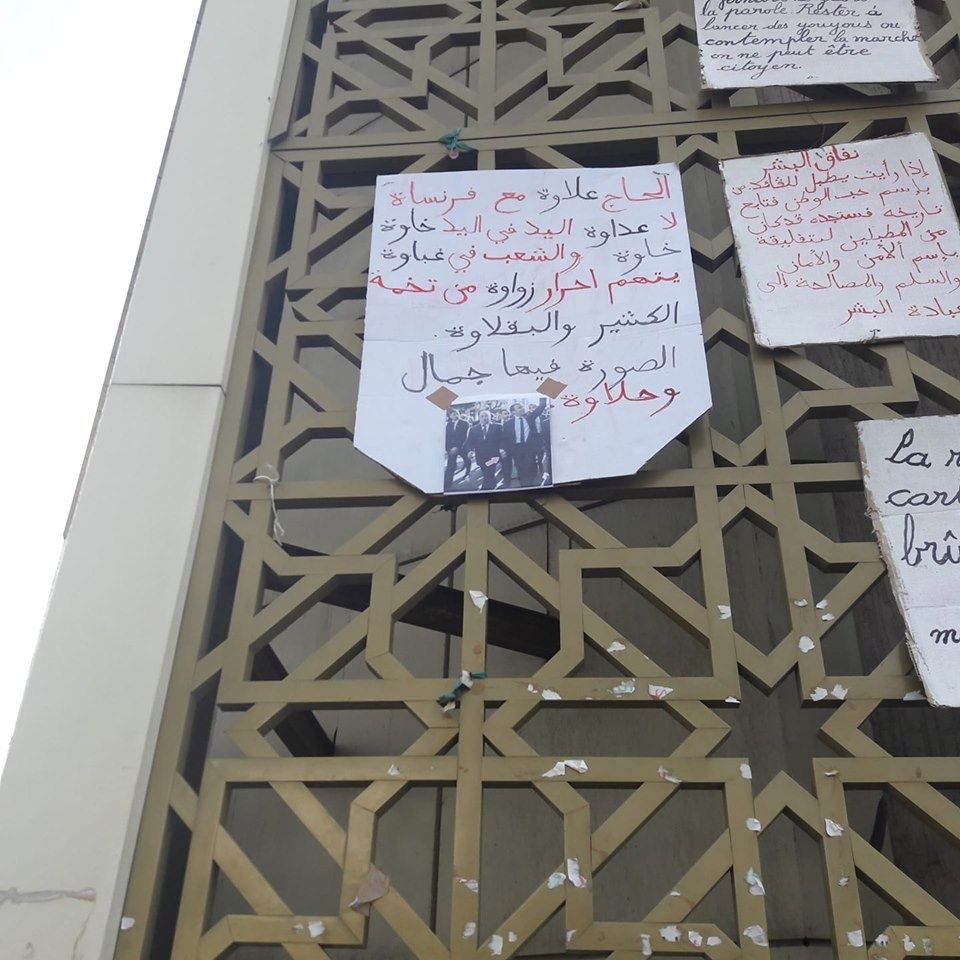 الحاج علاوة مع فرنساة
لا عداوة اليد في اليد خاوة
خاوة والشعب في غباوة
يتهم احرار زواوة من تخمة
الكثير والبقلاوة.
الصورة فيها جمال
وحلاوة
la parole. Rester à
lancer des youyous ou
contempler la marche
on ne peut être
citoyen.
نفاق البشر
إذا رأيت يطبل للقائد
بإسم حب الوطن فتابع
تاريخه فستجده قد كان
من المطبلين لبتفليقة
بإسم الأمن والأمان
والسلم والمصالحة الى
عبادة البشر
La
car
brû
m